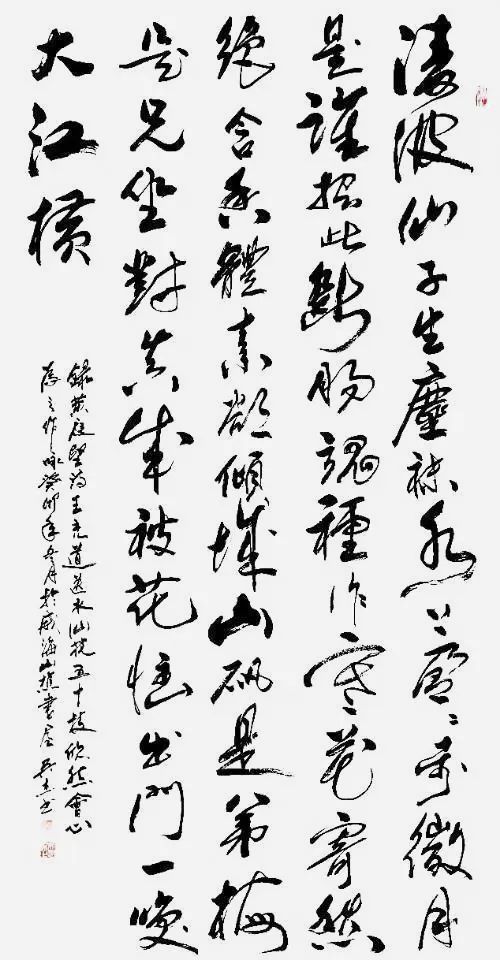 淩波仙子生塵襪水上盈盈步微月
是誰招此斷腸魂種作寒花寄愁
絕含香體素欲傾城山礬是弟梅
是兄坐對真成被花惱出門一笑
大江橫
錄黃庭堅詩王充道送水仙花五十枝欣然會心
為之作咏癸卯年月於威海山樵書屋